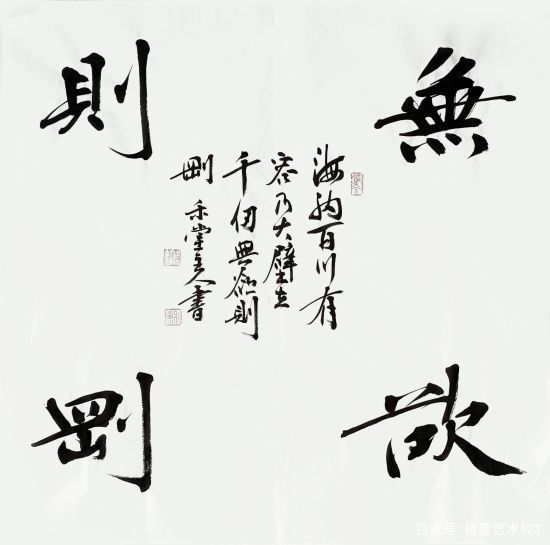 無欲
則剛
海納百川有
容乃大壁立
千仞無欲則
剛 禾堂主人書
百家号/楮墨艺术123